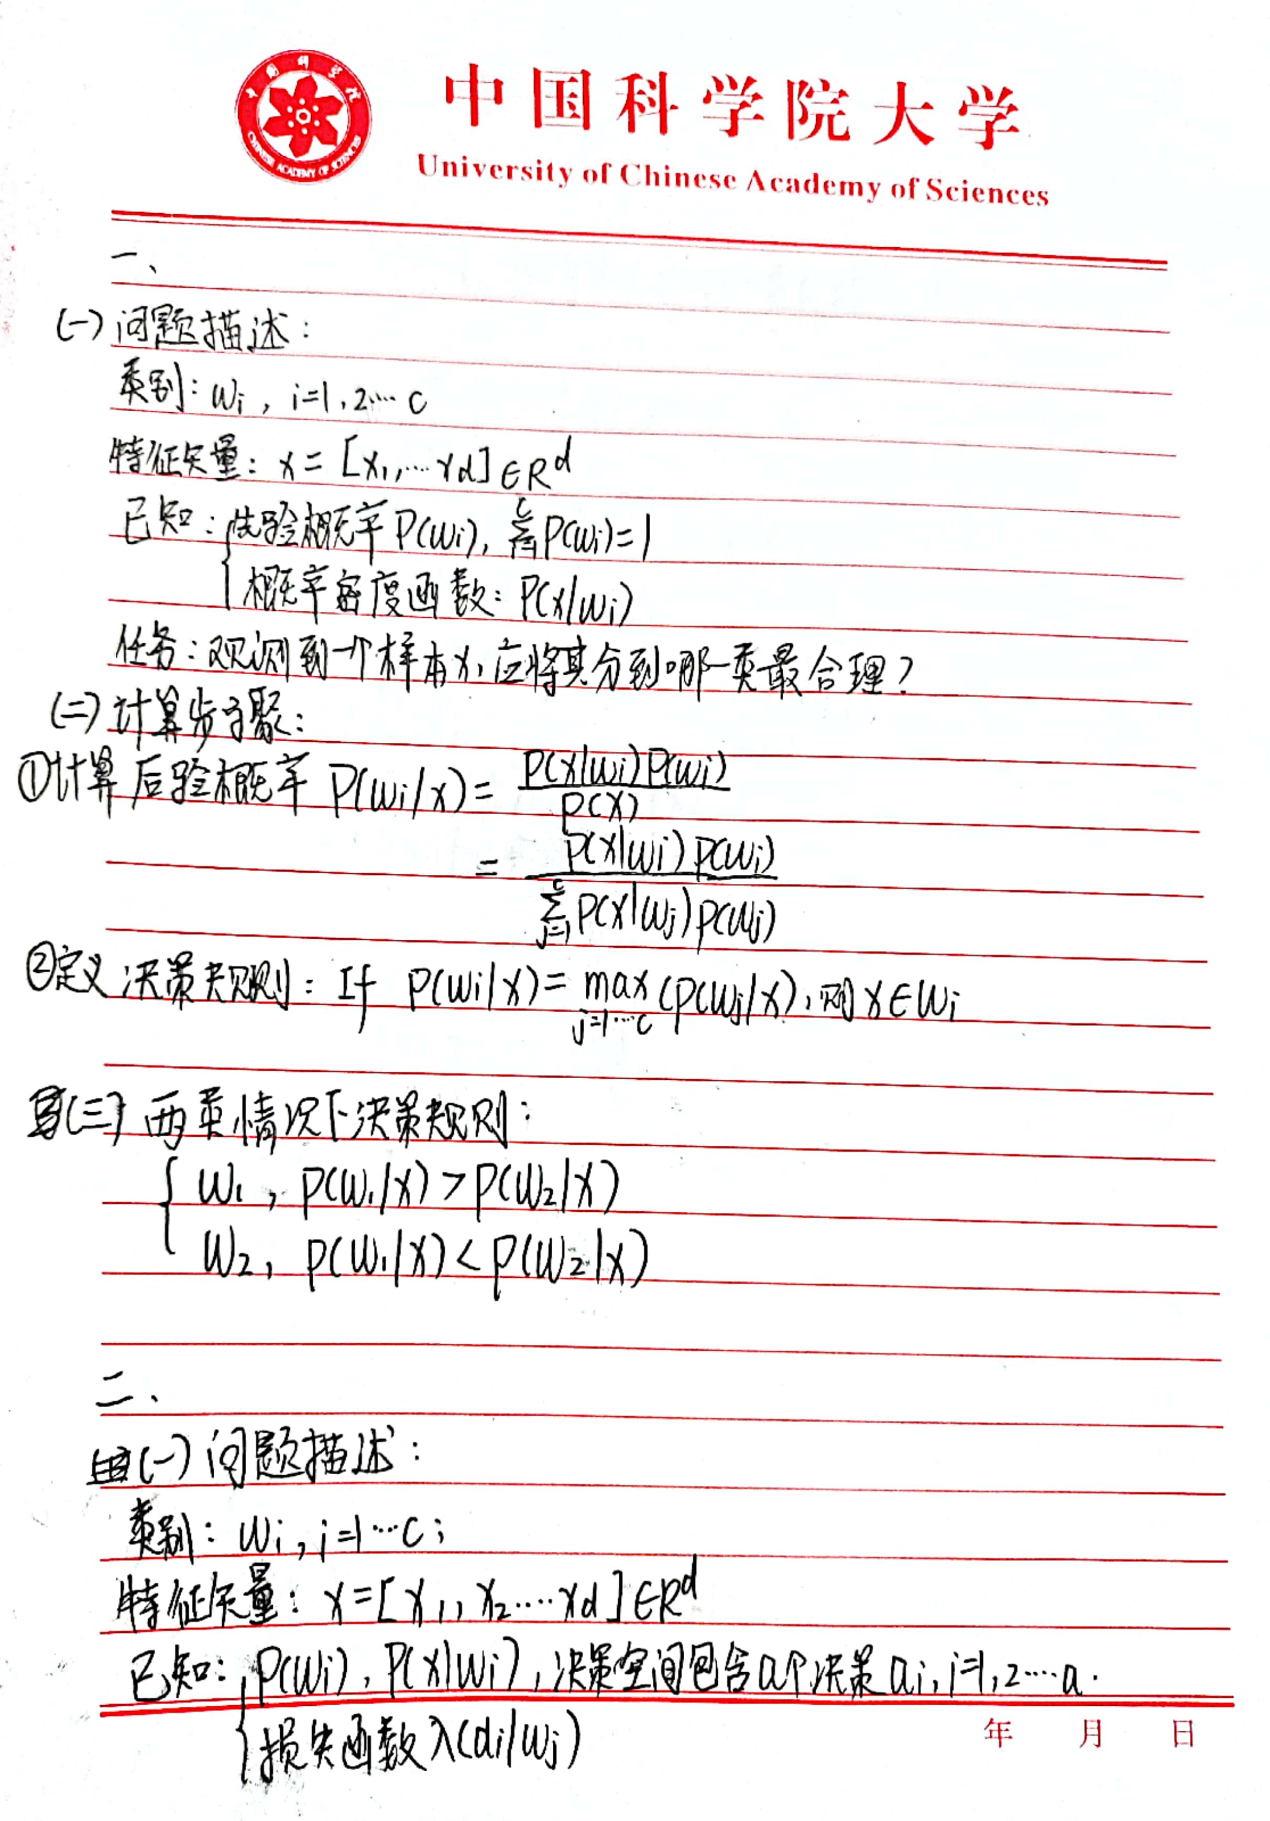 中国科学院大学
University of Chinese Academy of Sciences
一、
(一)问题描述：
类别：wi，i=1,2…c
特征矢量：x=[x1,…xd]∈R^d
已知：{先验概率P(wi), Σ_{i=1}^{c}P(wi)=1
概率密度函数：P(x|wi)
任务：观测到一个样本x，应将其分到哪一类最合理？
(二)计算步骤：
①计算后验概率 P(wi|x)= P(x|wi)P(wi) / P(x)
= P(x|wi)P(wi) / Σ_{j=1}^{c}P(x|wj)P(wj)
②定义决策规则：If P(wi|x)= max_{j=1…c}(P(wj|x)，则x∈wi
(三)两类情况下决策规则：
{ w1，P(w1|x)>P(w2|x)
w2，P(w1|x)<P(w2|x)
二、
(一)问题描述：
类别：wi，i=1…c；
特征矢量：x=[x1,x2…xd]∈R^d
已知：{P(wi)，P(x|wi)，决策空间包含a个决策ai，i=1,2…a.
损失函数λ(αi|wj)
年 月 日